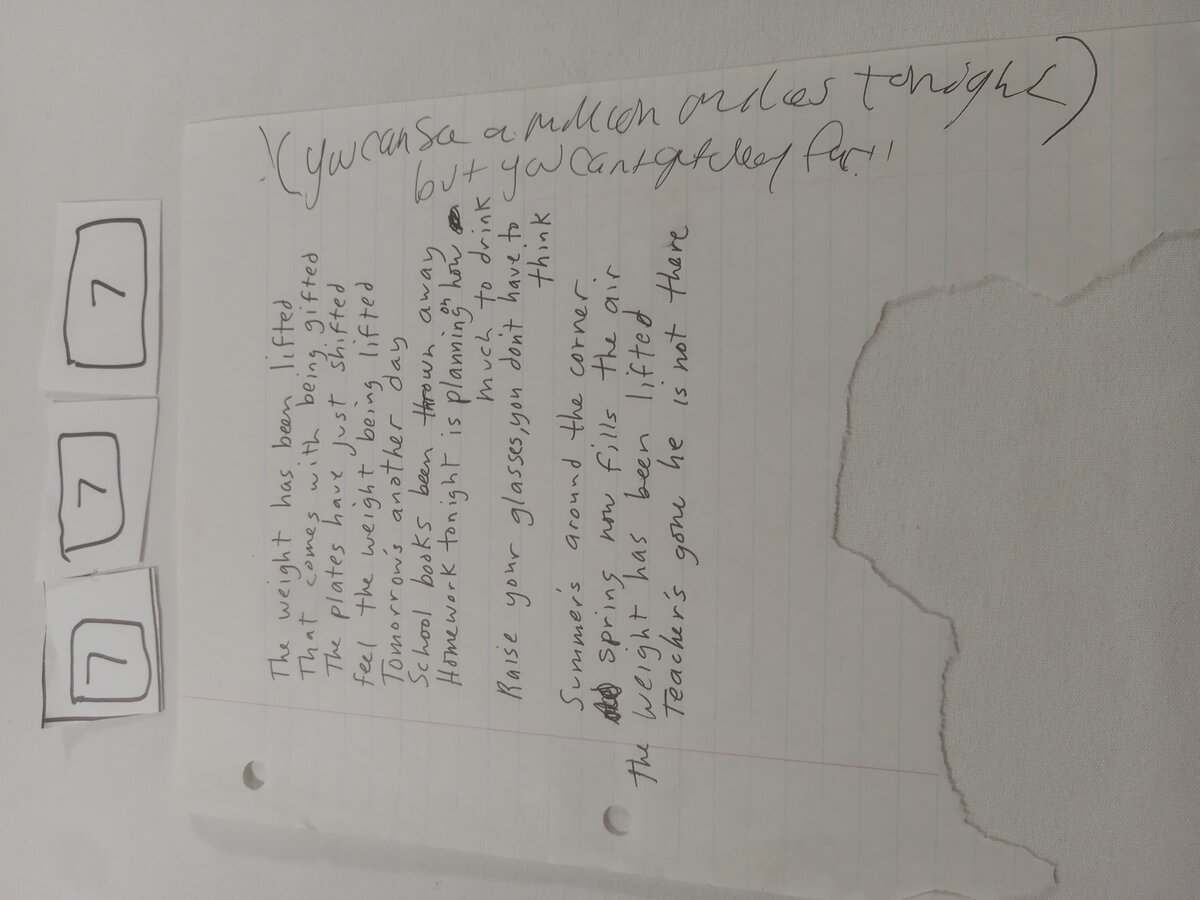 7 7 7
The weight has been lifted
That comes with being gifted
The plates have just shifted
feel the weight being lifted
Tomorrow's another day
School books been thrown away
Homework tonight is planning on how
much to drink
Raise your glasses, you don't have to
think
Summer's around the corner
spring now fills the air
the weight has been lifted
Teacher's gone he is not there
(you can see a million miles tonight)
but you can't get very far!!